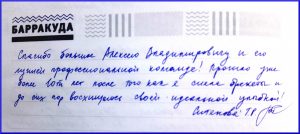 БАРРАКУДА
Спасибо большое Алексею Владимировичу и его
лучшей профессиональной команде! Прошло уже
более лет после того как я сняла брекеты и
до сих пор восхищаюсь своей идеальной улыбкой!